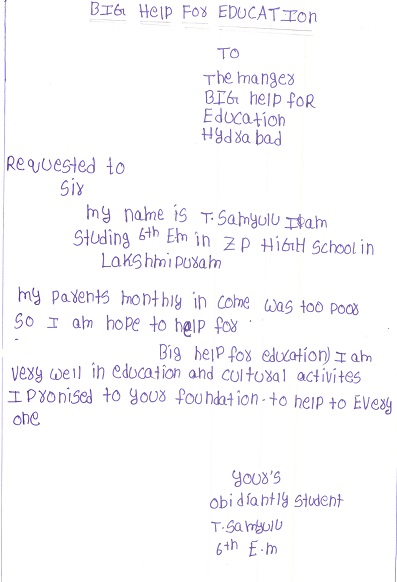 BIG HelP FoR EDUCATIon
TO
The manger
BIG help foR
Education
Hydrabad
Requested to
Sir
my name is T. Samyulu I am
Studing 6th Em in ZP HiGH School in
LaKShmipuram
my parents monthly in come was too poor
So I am hope to help for
Big help for education) I am
very well in education and cultural activites
I pronised to your foundation. to help to Every
one
your's
obidiantly student
T. Samyulu
6th E.m